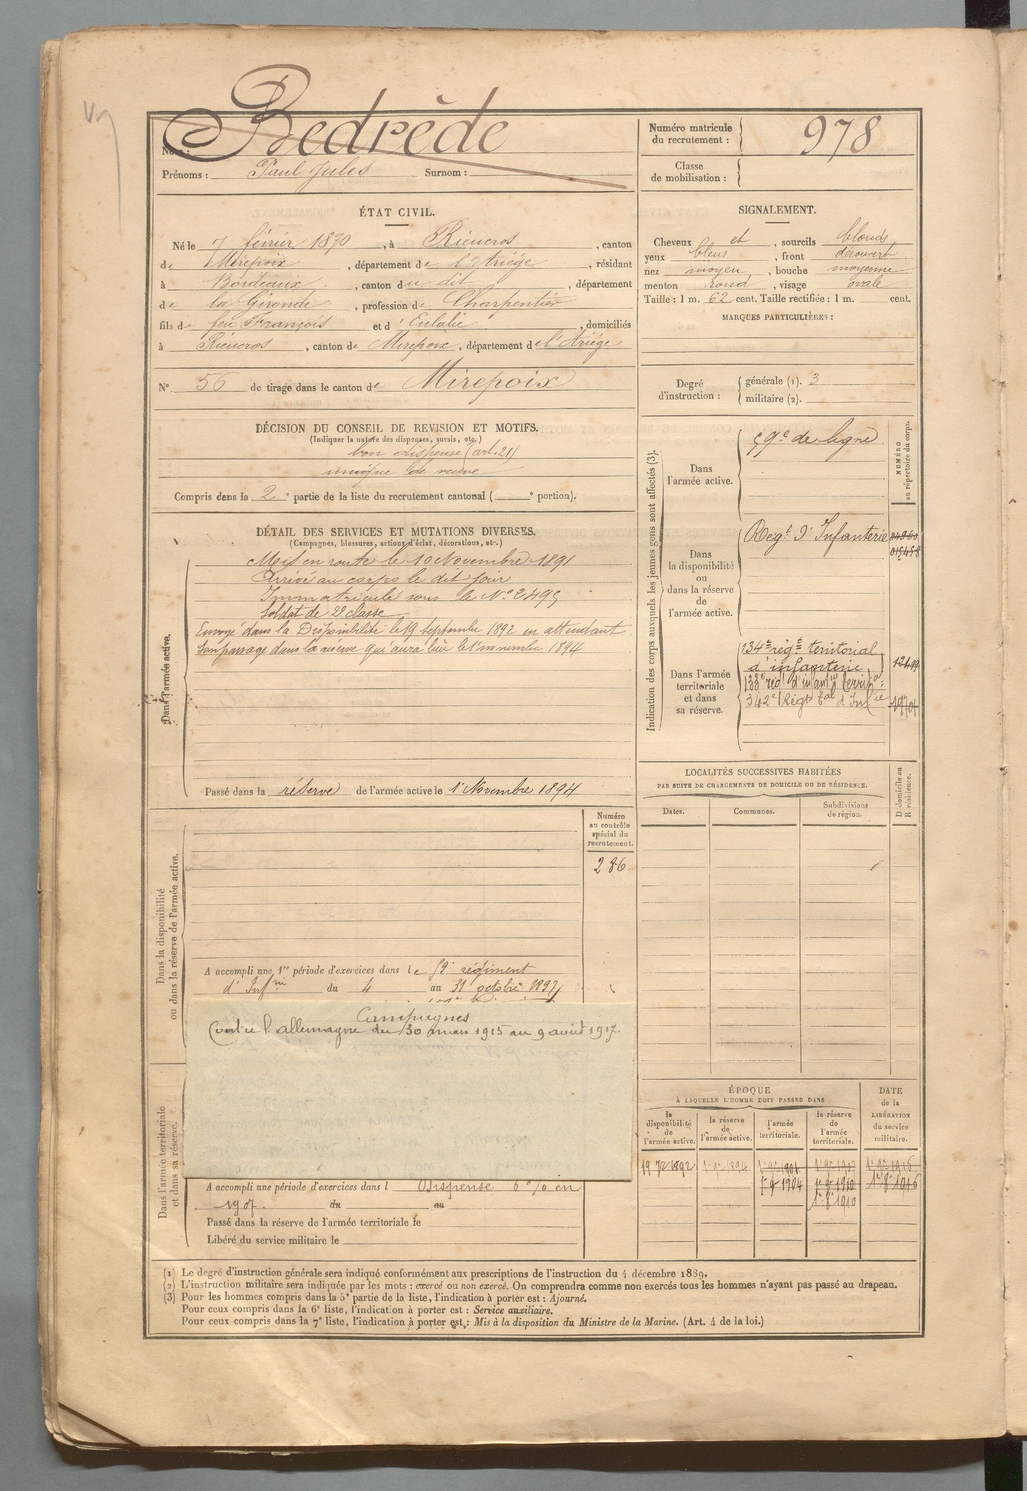 Bedrède
Nom :
Prénoms : Paul Jules Surnom :
Numéro matricule
du recrutement : 978
Classe
de mobilisation :
ÉTAT CIVIL.
Né le 7 février 1870, à Rieucros, canton
de Mirepoix, département de l'Ariége, résidant
à Bordeaux, canton du dit, département
de la Gironde, profession de Charpentier
fils de feu François et d'Eulalie, domiciliés
à Rieucros, canton de Mirepoix, département de l'Ariége
N° 56 de tirage dans le canton de Mirepoix
SIGNALEMENT.
Cheveux et, sourcils blonds
yeux bleus, front découvert
nez moyen, bouche moyenne
menton rond, visage ovale
Taille : 1 m. 62 cent. Taille rectifiée : 1 m. cent.
MARQUES PARTICULIÈRES :
Degré
d'instruction :
générale (1). 3
militaire (2).
DÉCISION DU CONSEIL DE REVISION ET MOTIFS.
(Indiquer la nature des dispenses, sursis, etc.)
bon dispensé (art. 21)
unique de veuve
Compris dans la 2e partie de la liste du recrutement cantonal ( e portion).
DÉTAIL DES SERVICES ET MUTATIONS DIVERSES.
(Campagnes, blessures, actions d'éclat, décorations, etc.)
Dans l'armée active.
Mis en route le 10 Novembre 1891
Arrivé au corps le dit jour
Immatriculé sous le N° 2495
Soldat de 2e classe
Envoyé dans la Disponibilité le 19 septembre 1892 en attendant
son passage dans la réserve qui aura lieu le 1er novembre 1894
Passé dans la réserve de l'armée active le 1er Novembre 1894
Indication des corps auxquels les jeunes gens sont affectés (3).
NUMÉRO
au répertoire du corps.
Dans
l'armée active.
59e de ligne
Dans
la disponibilité
ou
dans la réserve
de
l'armée active.
Regt d'Infanterie
Dans l'armée
territoriale
et dans
sa réserve.
134e régt territorial
d'infanterie
133e régt d'infant territ
342e Régt tal d'Infie
LOCALITÉS SUCCESSIVES HABITÉES
PAR SUITE DE CHANGEMENTS DE DOMICILE OU DE RÉSIDENCE.
Dates. Communes. Subdivisions
de région.
D domicile ou
R résidence.
Dans la disponibilité
ou dans la réserve de l'armée active.
Numéro
au contrôle
spécial du
recrutement.
286
A accompli une 1re période d'exercices dans le 59e régiment
d'Infrie du 4 au 31 octobre 1897
Campagnes
Contre l'allemagne du 30 mars 1915 au 9 août 1917.
Dans l'armée territoriale
et dans sa réserve.
A accompli une période d'exercices dans l Dispensé 6 % en
1907. du au
Passé dans la réserve de l'armée territoriale le
Libéré du service militaire le
ÉPOQUE
À LAQUELLE L'HOMME DOIT PASSER DANS
la
disponibilité
de
l'armée active.
la réserve
de
l'armée active.
l'armée
territoriale.
la réserve
de
l'armée
territoriale.
DATE
de la
LIBÉRATION
du service
militaire.
(1) Le degré d'instruction générale sera indiqué conformément aux prescriptions de l'instruction du 4 décembre 1889.
(2) L'instruction militaire sera indiquée par les mots : exercé ou non exercé. On comprendra comme non exercés tous les hommes n'ayant pas passé au drapeau.
(3) Pour les hommes compris dans la 5e partie de la liste, l'indication à porter est : Ajourné.
Pour ceux compris dans la 6e liste, l'indication à porter est : Service auxiliaire.
Pour ceux compris dans la 7e liste, l'indication à porter est : Mis à la disposition du Ministre de la Marine. (Art. 4 de la loi.)